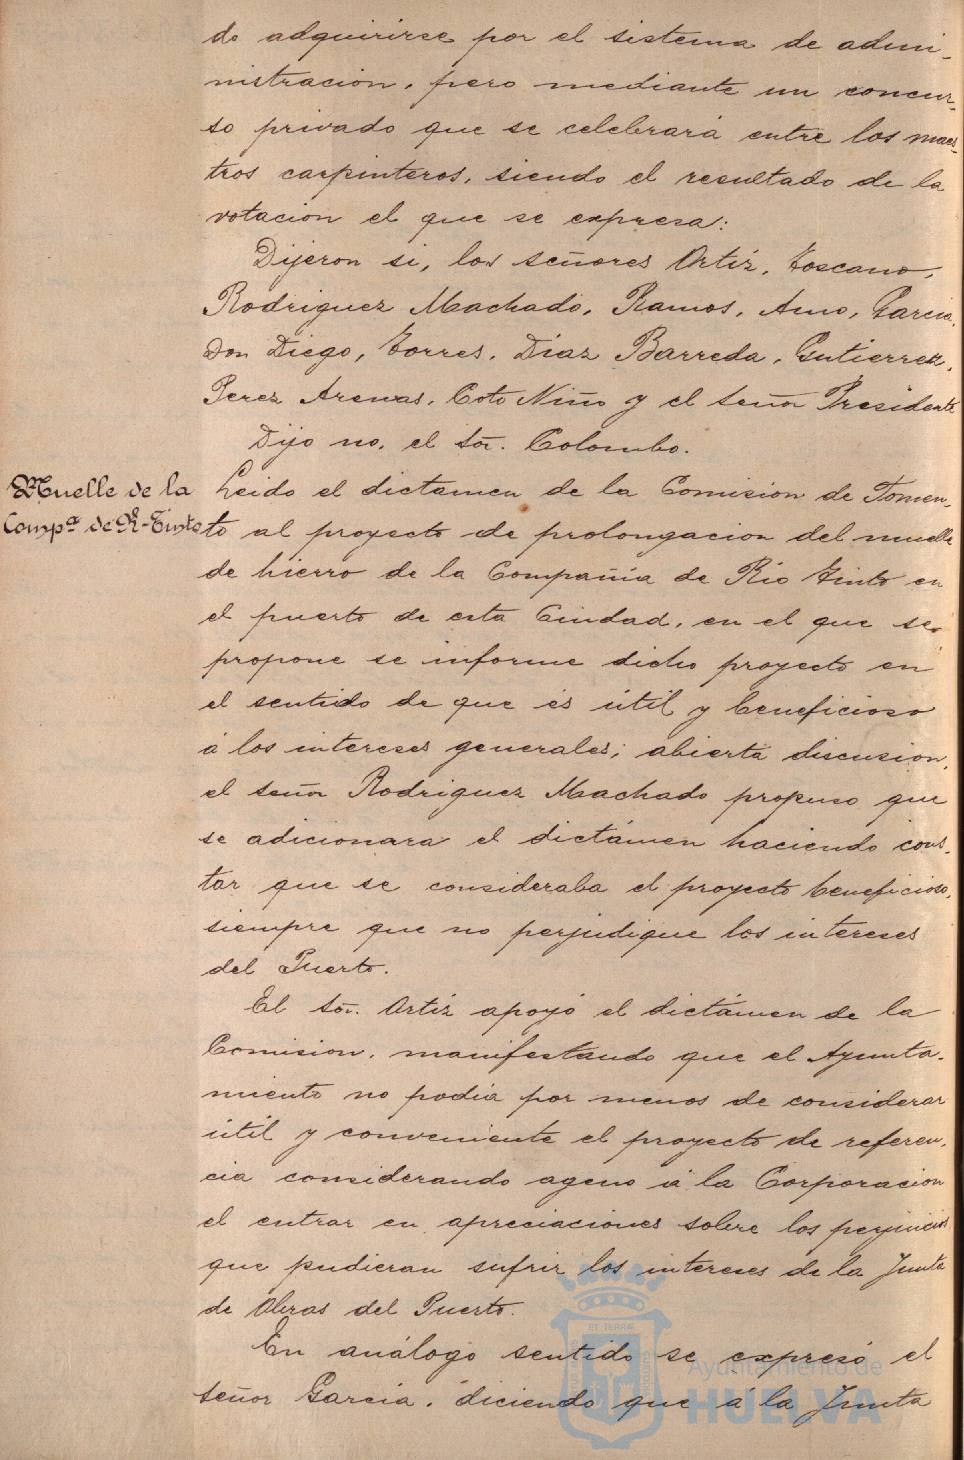 do adquirirse por el sistema de admi-
nistracion, pero mediante un concur-
so privado que se celebrará entre los maes-
tros carpinteros, siendo el resultado de la
votacion el que se expresa:
Dijeron si, los señores Ortiz, Toscano,
Rodriguez Machado, Ramos, Amo, Garcia
Don Diego, Torres, Diaz Barreda, Gutierrez,
Perez Arenas, Coto Niño y el señor Presidente
Dijo no, el Sor. Colombo.
Muelle de la
Compª de R-Tinto
Leido el dictamen de la Comision de Fomen-
to al proyecto de prolongacion del muelle
de hierro de la Compañia de Rio Tinto en
el puerto de esta Ciudad, en el que se
propone se informe dicho proyecto en
el sentido de que és útil y beneficioso
á los intereses generales; abierta discusion,
el señor Rodriguez Machado propuso que
se adicionara el dictámen haciendo cons-
tar que se consideraba el proyecto beneficioso,
siempre que no perjudique los intereses
del Puerto.
El Sor. Ortiz apoyó el dictámen de la
Comision, manifestando que el Ayunta-
miento no podia por menos de considerar
útil y conveniente el proyecto de referen-
cia considerando ageno á la Corporacion
el entrar en apreciaciones sobre los perjuicios
que pudieran sufrir los intereses de la Junta
de Obras del Puerto.
En análogo sentido se expresó el
señor Garcia, diciendo que á la Junta
Ayuntamiento de
HUELVA